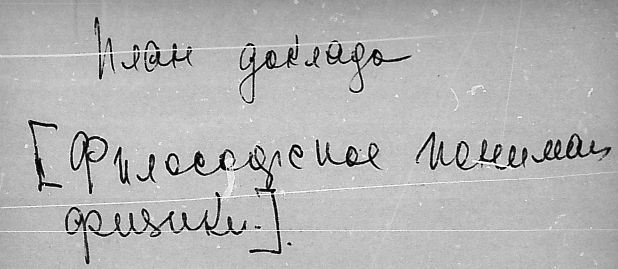 План доклада
[Философское пониман
физики.].